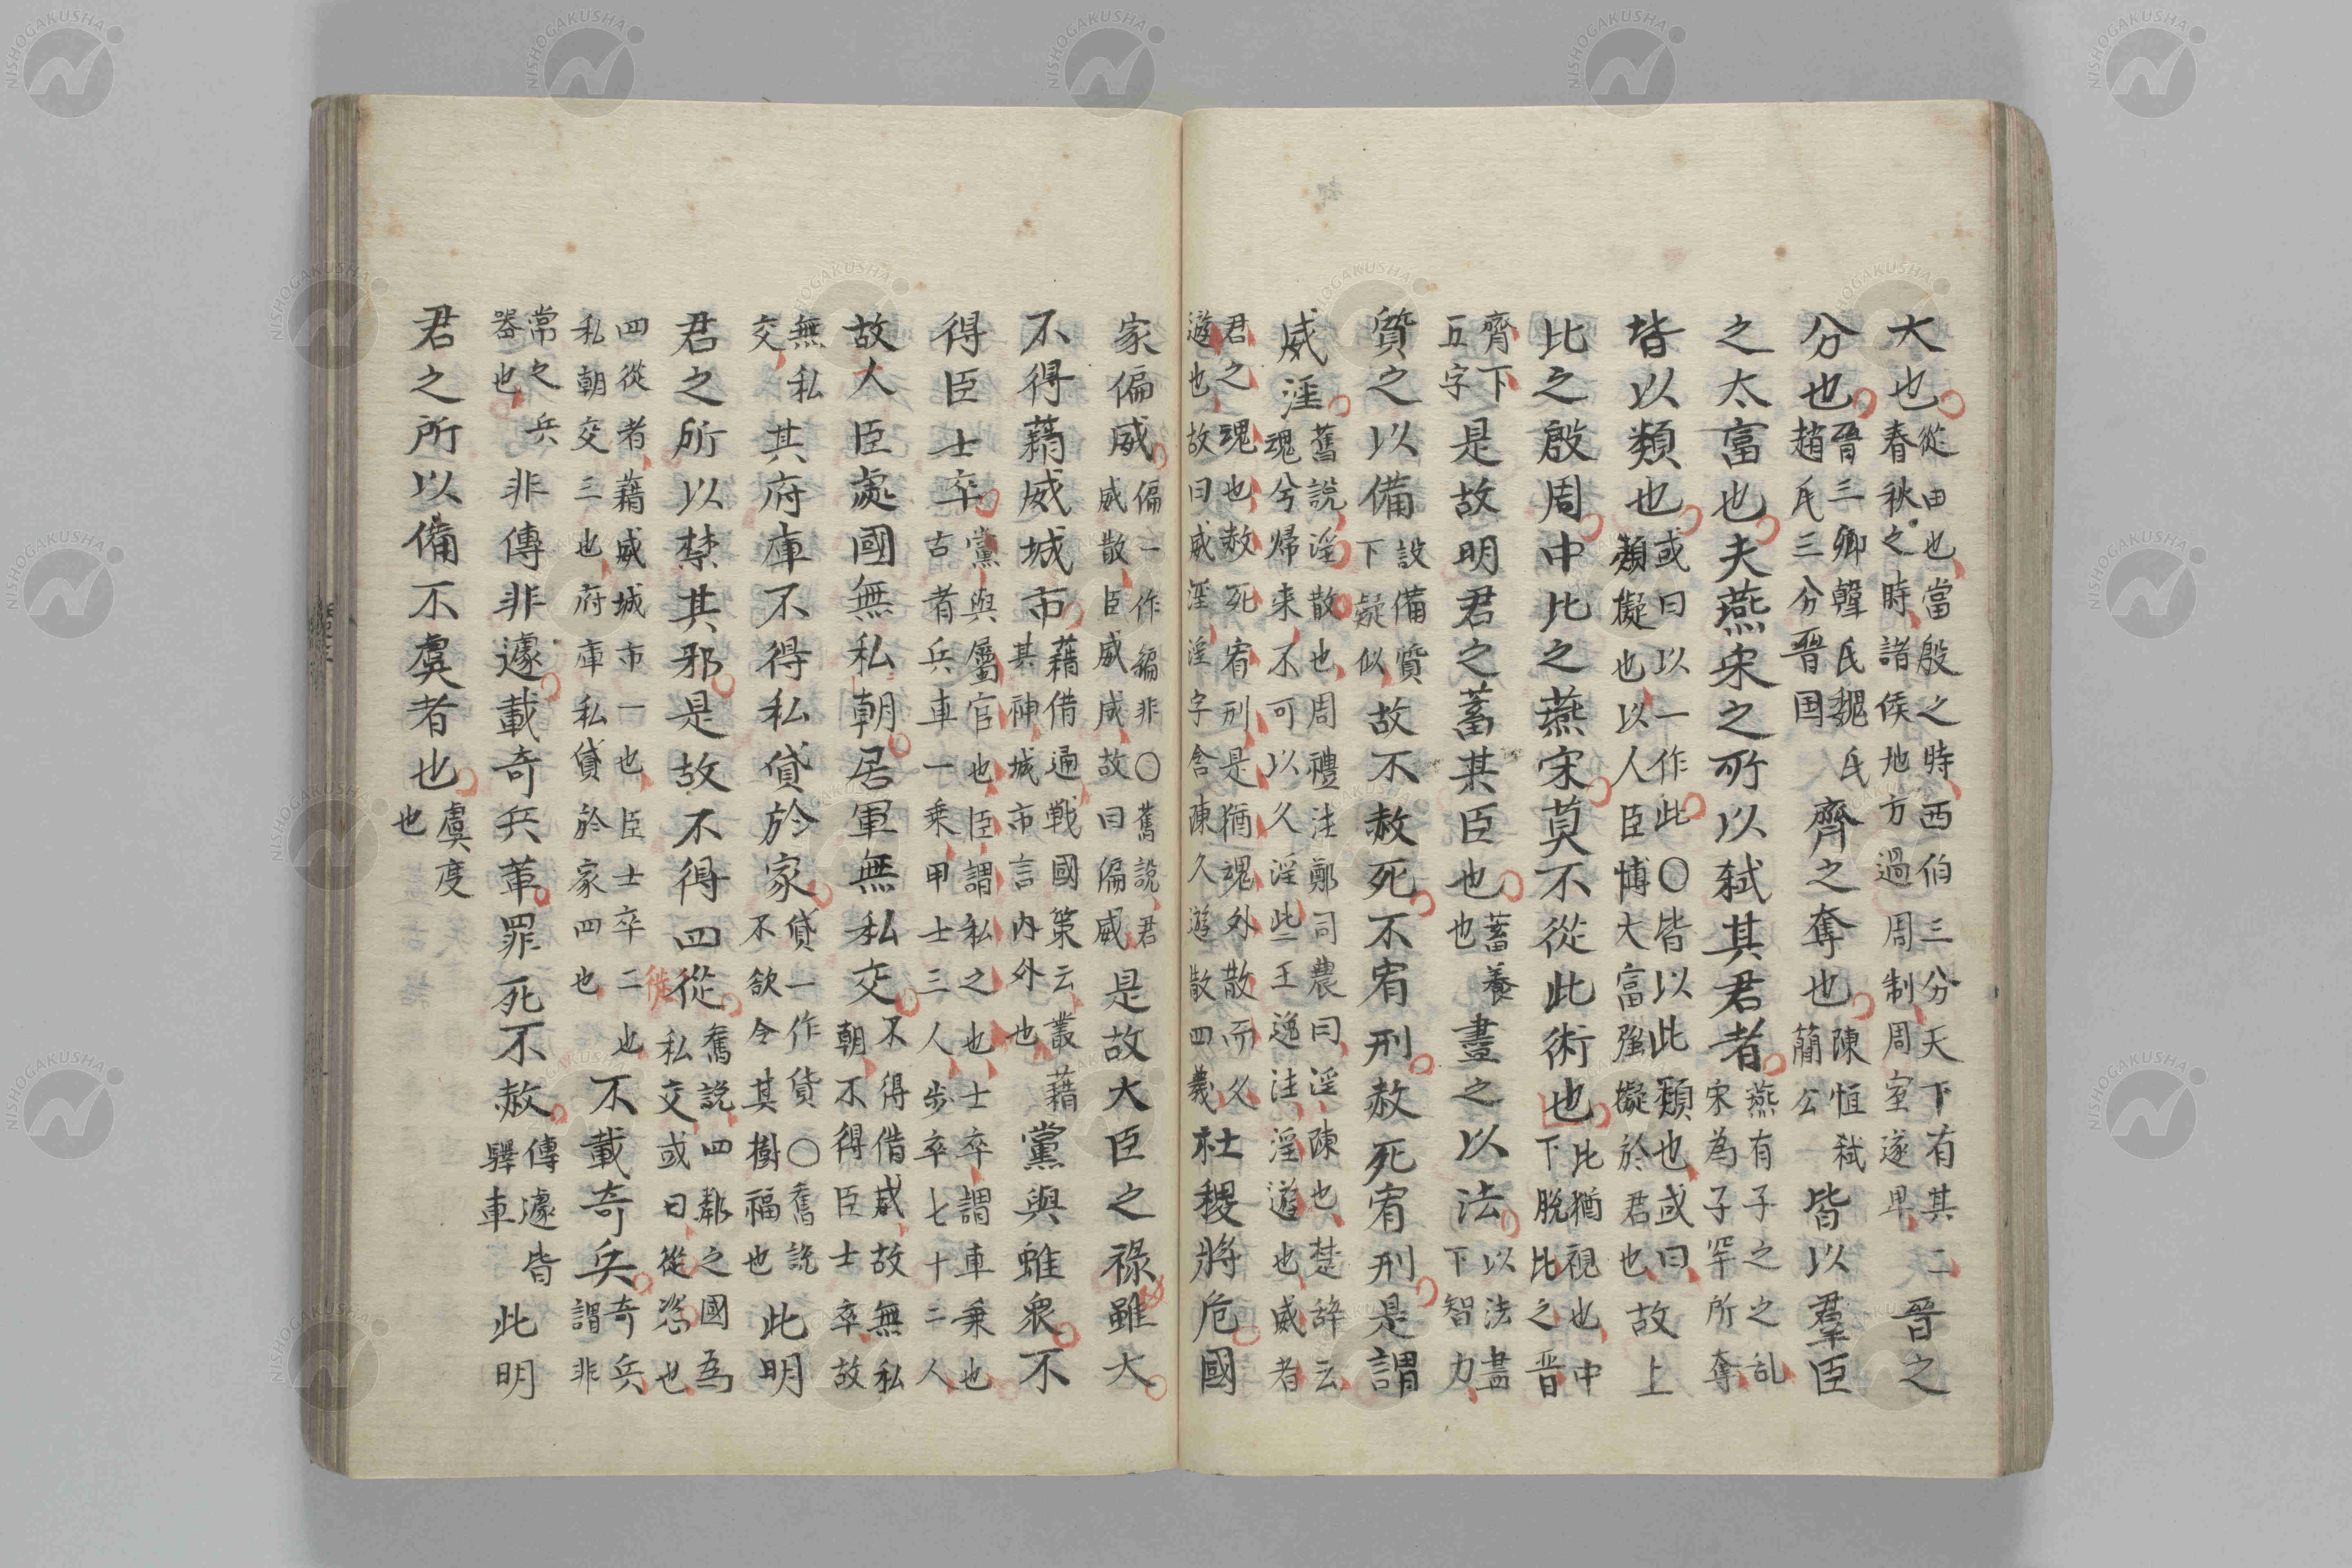 大也從由也當殷之時西伯三分天下有其二春秋之時諸侯地方過周制周室遂卑晉之
分也晉三卿韓氏魏氏趙氏三分晉国齊之奪也陳恒弒簡公皆以羣臣
之太富也夫燕宋之所以弒其君者燕有子之之乱宋為子罕所奪
皆以類也或曰以一作此〇皆以此類也或曰類擬也以人臣博大富強擬於君也故上
比之殷周中比之燕宋莫不從此術也比猶視也中下脫比之晋
齊下五字是故明君之蓄其臣也蓄養也盡之以法以法盡下智力
質之以備設備質下疑似故不赦死不宥刑赦死宥刑是謂
威淫舊說淫散也周禮注鄭司農曰淫陳也楚辞云魂兮歸来不可以久淫些王逸注淫遊也威者
君之魂也赦死宥刑是猶魂外散而久遊也故曰威淫淫字含陳久遊散四義社稷將危國
家偏威偏一作編非〇舊說君威散臣威威故曰偏威是故大臣之祿雖大
不得藉威城市藉借通戰國策云叢藉其神城市言内外也黨與雖衆不
得臣士卒黨與屬官也臣謂私之也士卒謂車乗也古者兵車一乗甲士三人步卒七十二人
故人臣處國無私朝居軍無私交不得借威故無私朝不得臣士卒故
無私交其府庫不得私貸於家貸一作貨〇舊說不欲令其樹福也此明
君之所以禁其邪是故不得四從徙舊說四鄰之國為私交或曰從恣也
四從者藉威城市一也臣士卒二也私朝交三也府庫私貸於家四也不載奇兵奇兵謂非
常之兵器也非傳非遽載奇兵革罪死不赦傳遽皆驛車此明
君之所以備不虞者也虞度也